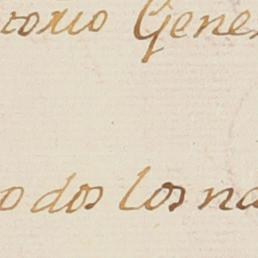 torio Gene
odos los na